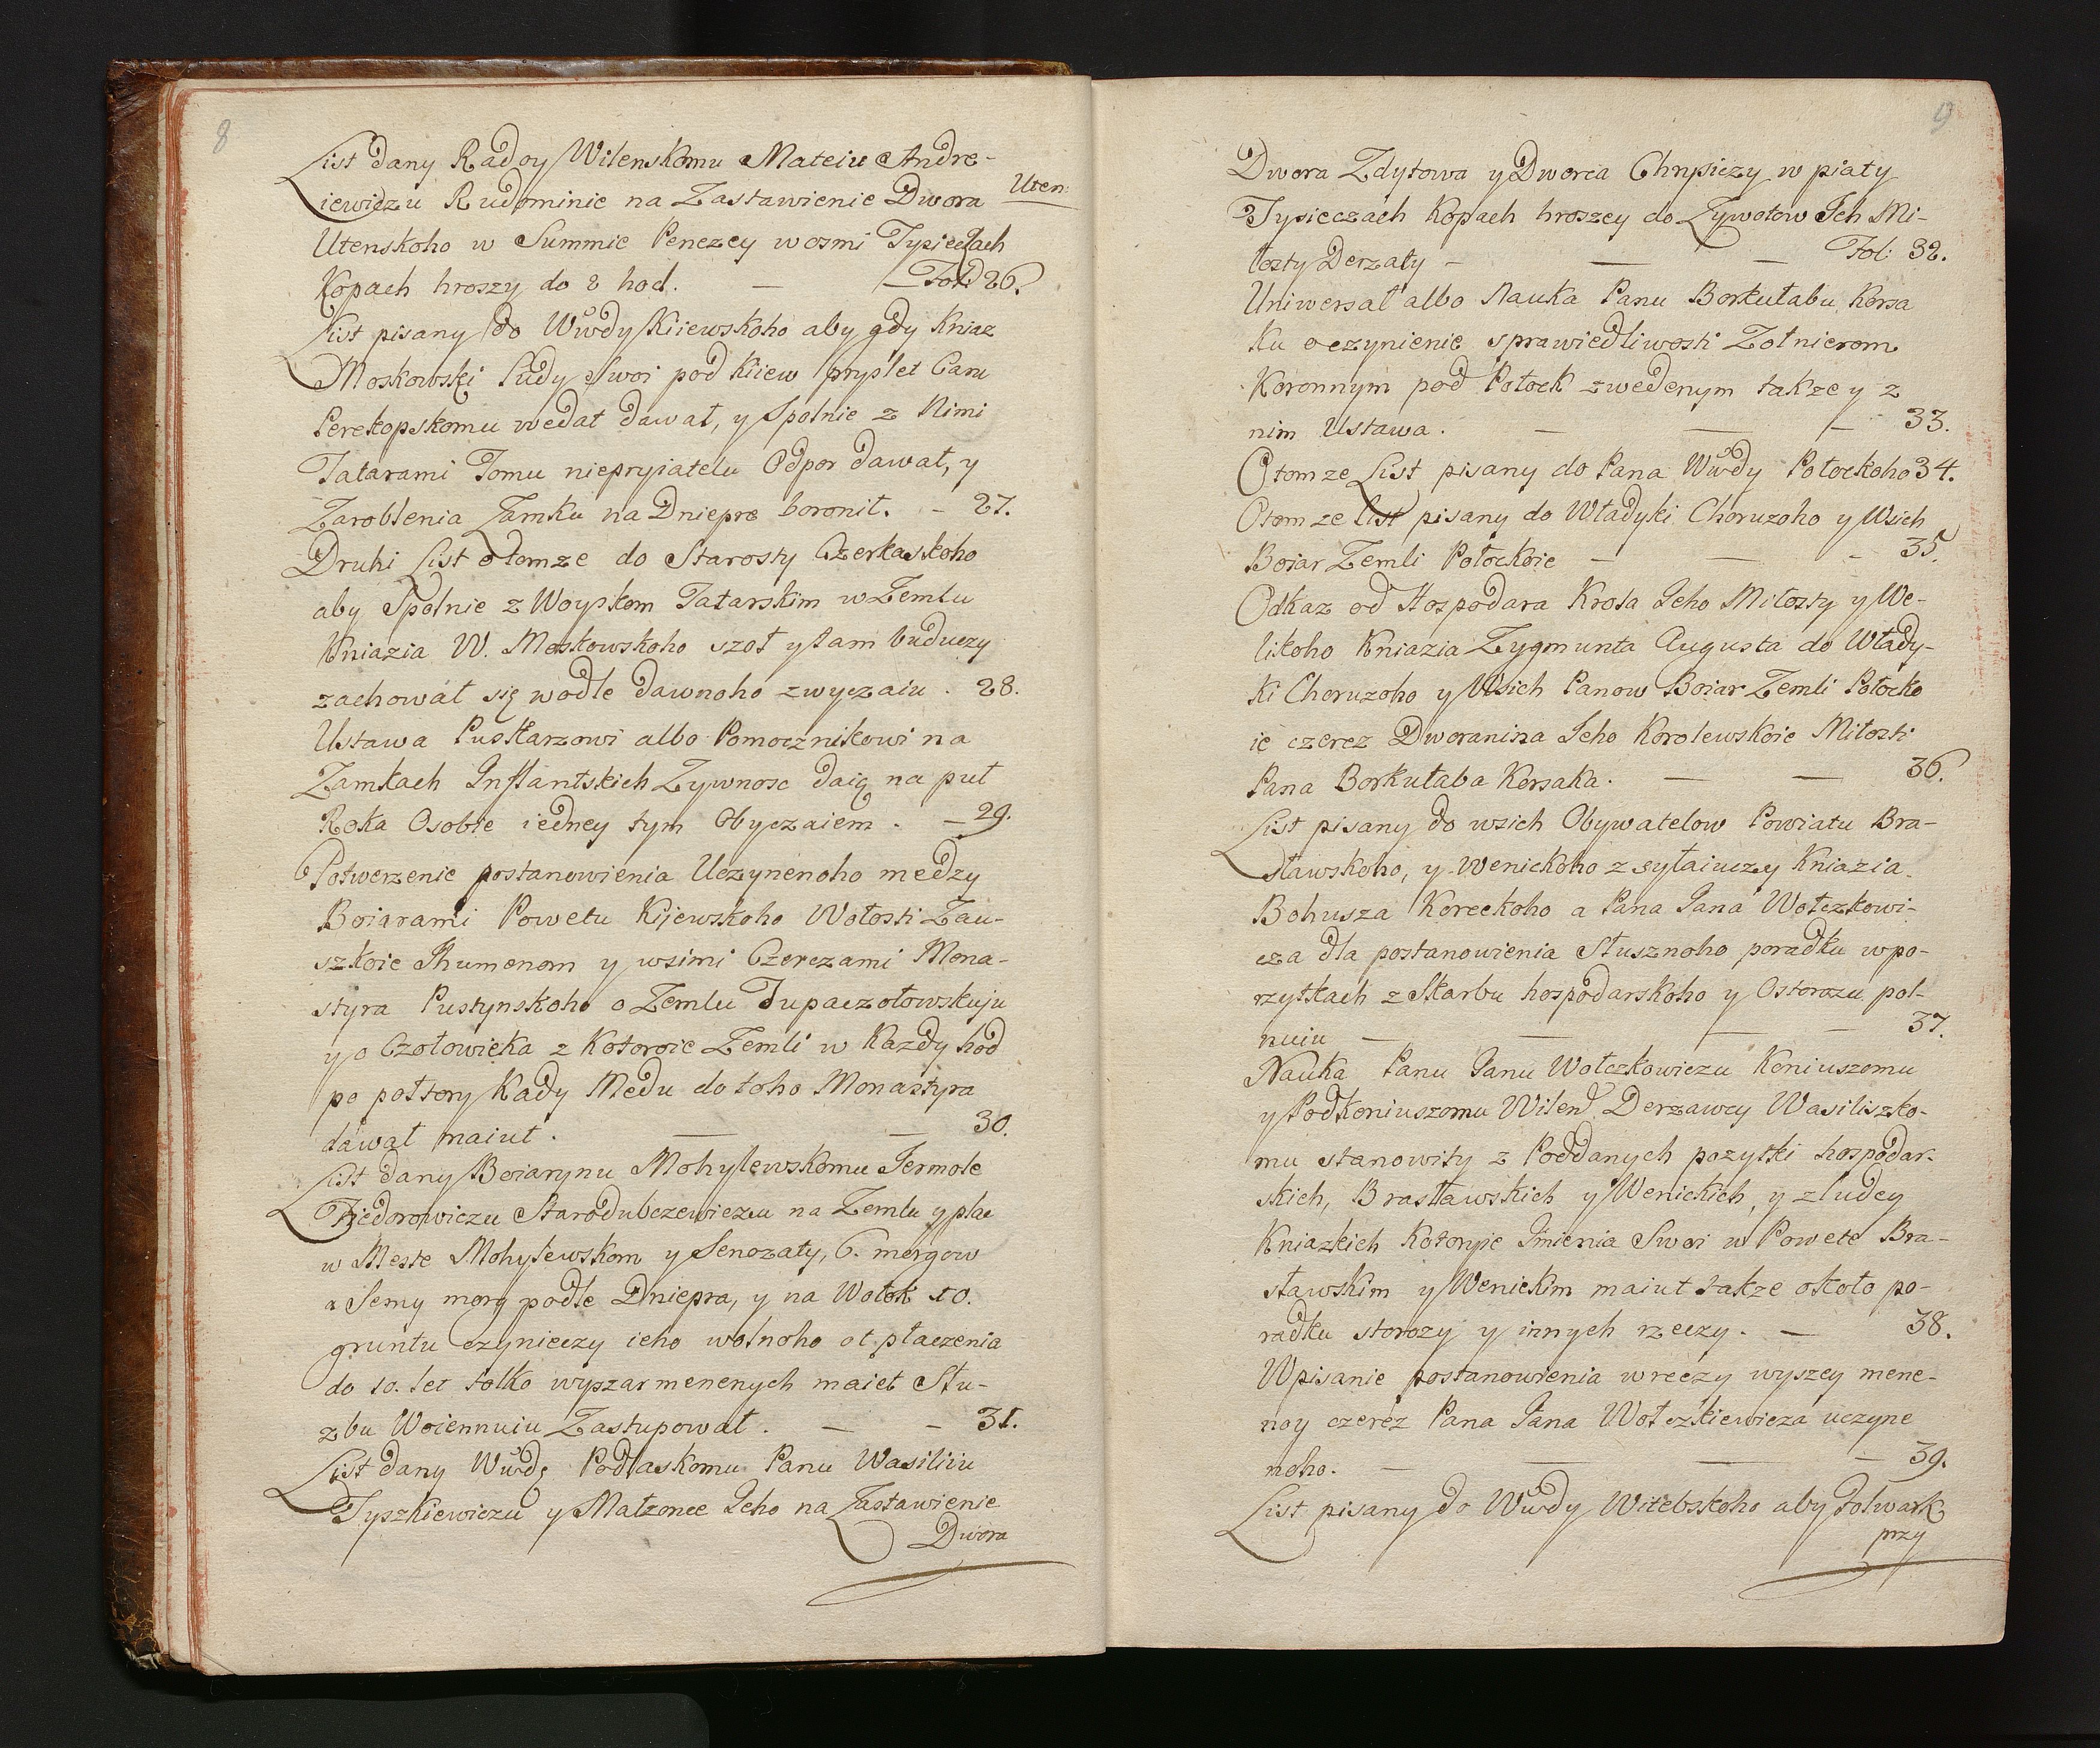 8
List dany Radcy Wilenskomu Mateiu Andre-
iewiczu Rudominie na Zastawienie Dwora
Uten:
Utenskoho w Summie Penezey wosmi Tysieczach
Kopach hroszy do 2 hod. — — Fol: 26.
List pisany do Wwdy Kiiewskoho aby gdy Kniaz
Moskowski Ludy Swoi pod Kiiew pryslet Caru
Perekopskomu wedat dawał, y Spolnie z Nimi
Tatarami Tomu niepryiatelu Odpor dawał, y
Zaroblenia Zamku na Dniepre boronił. – 27.
Druhi List otomze do Starosty Czerkaskoho
aby Spolnie z Woyskom Tatarskim w Zemlu
Kniazia W. Moskowskoho szoł y tam buduczy
zachował się wodle dawnoho zwyczaiu. 28.
Ustawa Puskarzowi albo Pomocznikowi na
Zamkach Inflantskich Zywnosc daią na puł
Roka Osobie iedney tym Obyczaiem. – 29.
Potwerzenie postanowienia Uczynenoho medzy
Boiarami Powetu Kijewskoho Wołosti Zau-
szkoie Ihumenom y wsimi Czerczami Mona-
styra Pustynskoho o Zemlu Tupaczołowskuju
y o Czołowieka z Kotoroie Zemli w Kazdy hod
po połtory Kady Medu do toho Monastyra
dawał maiut. — — 30.
List dany Boiarynu Mohylewskomu Jermole
Fiedorowiczu Starodubczewiczu na Zemlu y plac
w Meste Mohylewskom y Senozaty, 6. morgow
a Semy morg podle Dniepra, y na Wołok 10.
gruntu czynieczy ieho wolnoho ot płaczenia
do 10. let tolko wyszar menenych maiet Słu-
zbu Woiennuiu Zastupował. — – 31.
List dany Wwdę Podlaskomu Panu Wasiliiu
Tyszkiewiczu y Małzonce Jeho na Zastawienie
Dwora
9
Dwora Zdytowa y Dworca Chrypiczy w piaty
Tysieczach Kopach hroszey do Zywotow Ich Mi-
łosty Derzały – — – Fol: 32.
Uniwersał albo Nauka Panu Borkułabu Korsa
Ku o czynienie sprawiedliwosti Zołnierom
Koronnym pod Połock zwedenym takze y z
nim Ustawa. — — – 33.
Otomze List pisany do Pana Wwdy Połockoho 34.
Otomze list pisany do Władyki Choruzoho y Wsich
Boiar Zemli Połockoie – — – 35.
Odkaz od Hospodara Krola Jeho Miłosty y We-
likoho Kniazia Zygmunta Augusta do Włady-
Ki Choruzoho y Wsich Panow Boiar Zemli Połocko
ie czerez Dworanina Jeho Korolewskoie Miłosti
Pana Borkułaba Korsaka. — — 36.
List pisany do wsich Obywatelow Powiatu Bra-
sławskoho, y Wenickoho zsyłaiuczy Kniazia
Bohusza Koreckoho a Pana Jana Wołczkowi-
cza dla postanowienia Słusznoho poradku w po-
rzytkach z Skarbu hospodarskoho y Ostorozu pol-
nuiu — — — – 37.
Nauka Panu Janu Wołczkowiczu Koniuszomu
y Podkoniuszomu Wilen: Derzawcy Wasiliszko-
mu stanowity z Poddanych pozytki hospodar-
skich, Brasławskich y Wenickich, y z ludey
Kniazkich Kotoryie Jmienia Swoi w Powete Bra-
sławskim y Wenickim maiut takze około po-
radku storozy y innych rzeczy. — 38.
Wpisanie postanowienia w reczy wyszey mene-
noy czerez Pana Jana Wołczkiewicza uczyne
noho. – — — – 39.
List pisany do Wwdy Witebskoho aby Folwark
przy